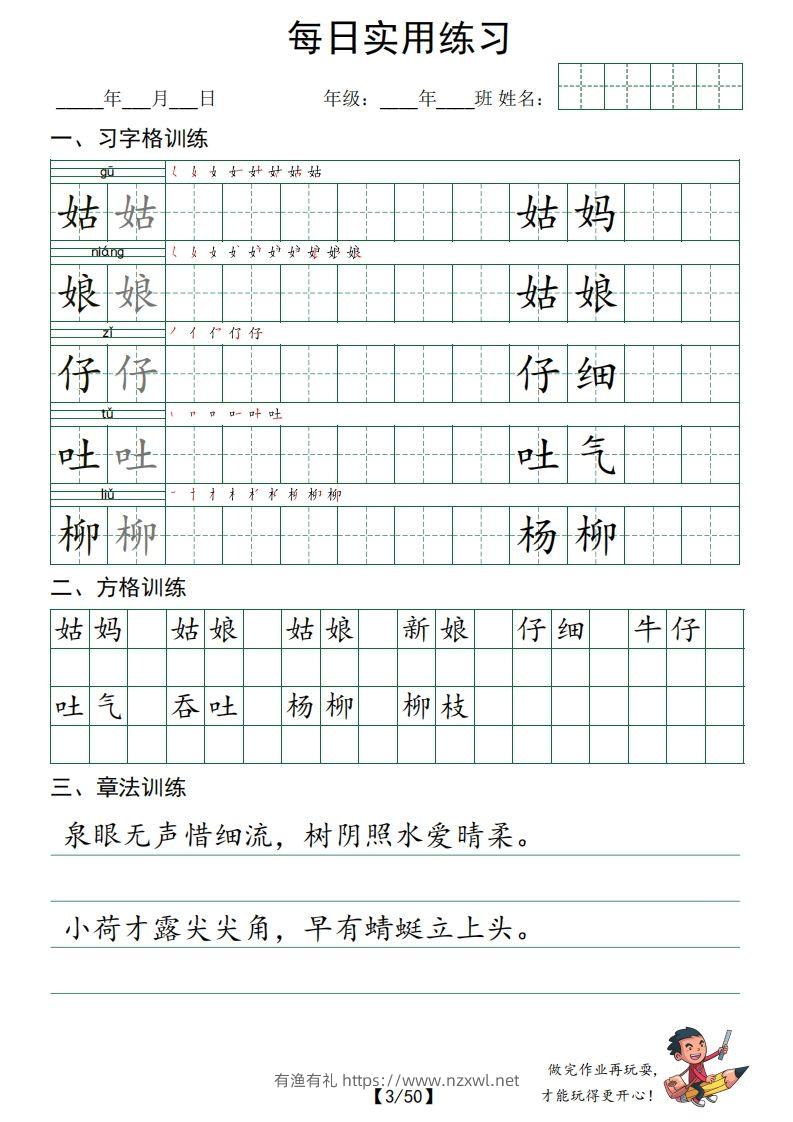 每日实用练习
_____年___月___日 年级：____年____班 姓名：
一、习字格训练
gū
姑 姑 姑 妈
niáng
娘 娘 姑 娘
zǐ
仔 仔 仔 细
tǔ
吐 吐 吐 气
liǔ
柳 柳 杨 柳
二、方格训练
姑妈 姑娘 姑娘 新娘 仔细 牛仔
吐气 吞吐 杨柳 柳枝
三、章法训练
泉眼无声惜细流，树阴照水爱晴柔。
小荷才露尖尖角，早有蜻蜓立上头。
做完作业再玩耍，
才能玩得更开心！
有渔有礼 https://www.nzxwl.net
【3/50】